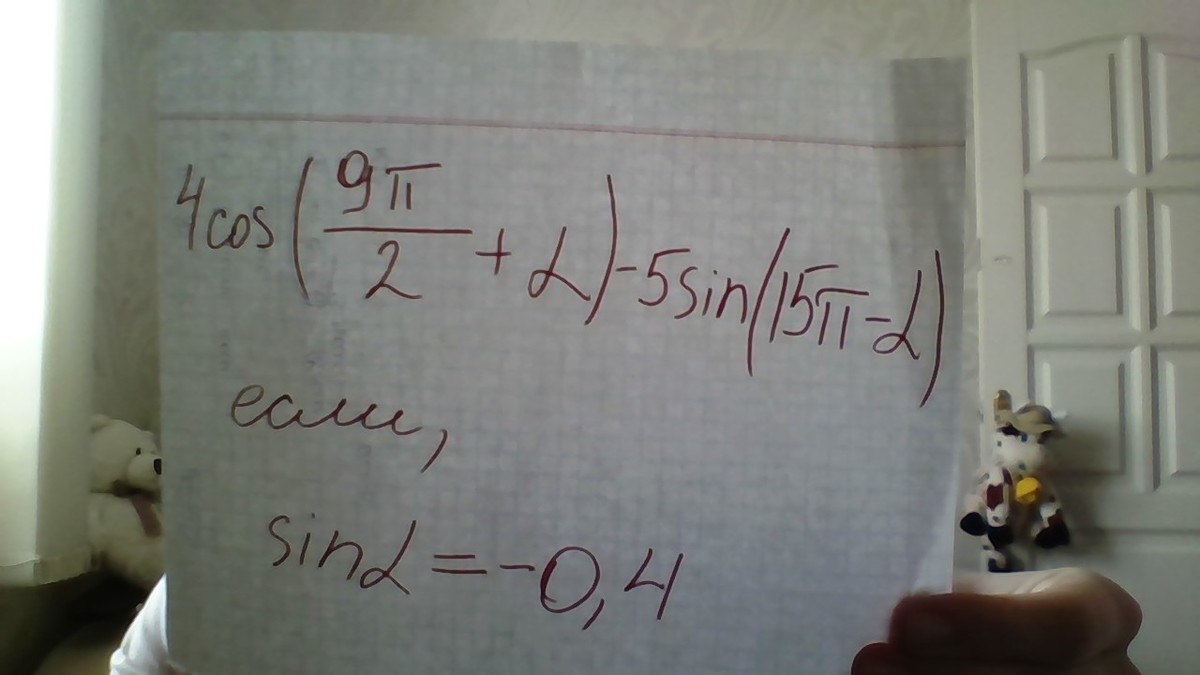 4cos(9π/2 + α) - 5sin(15π - α)
если,
sinα = -0,4